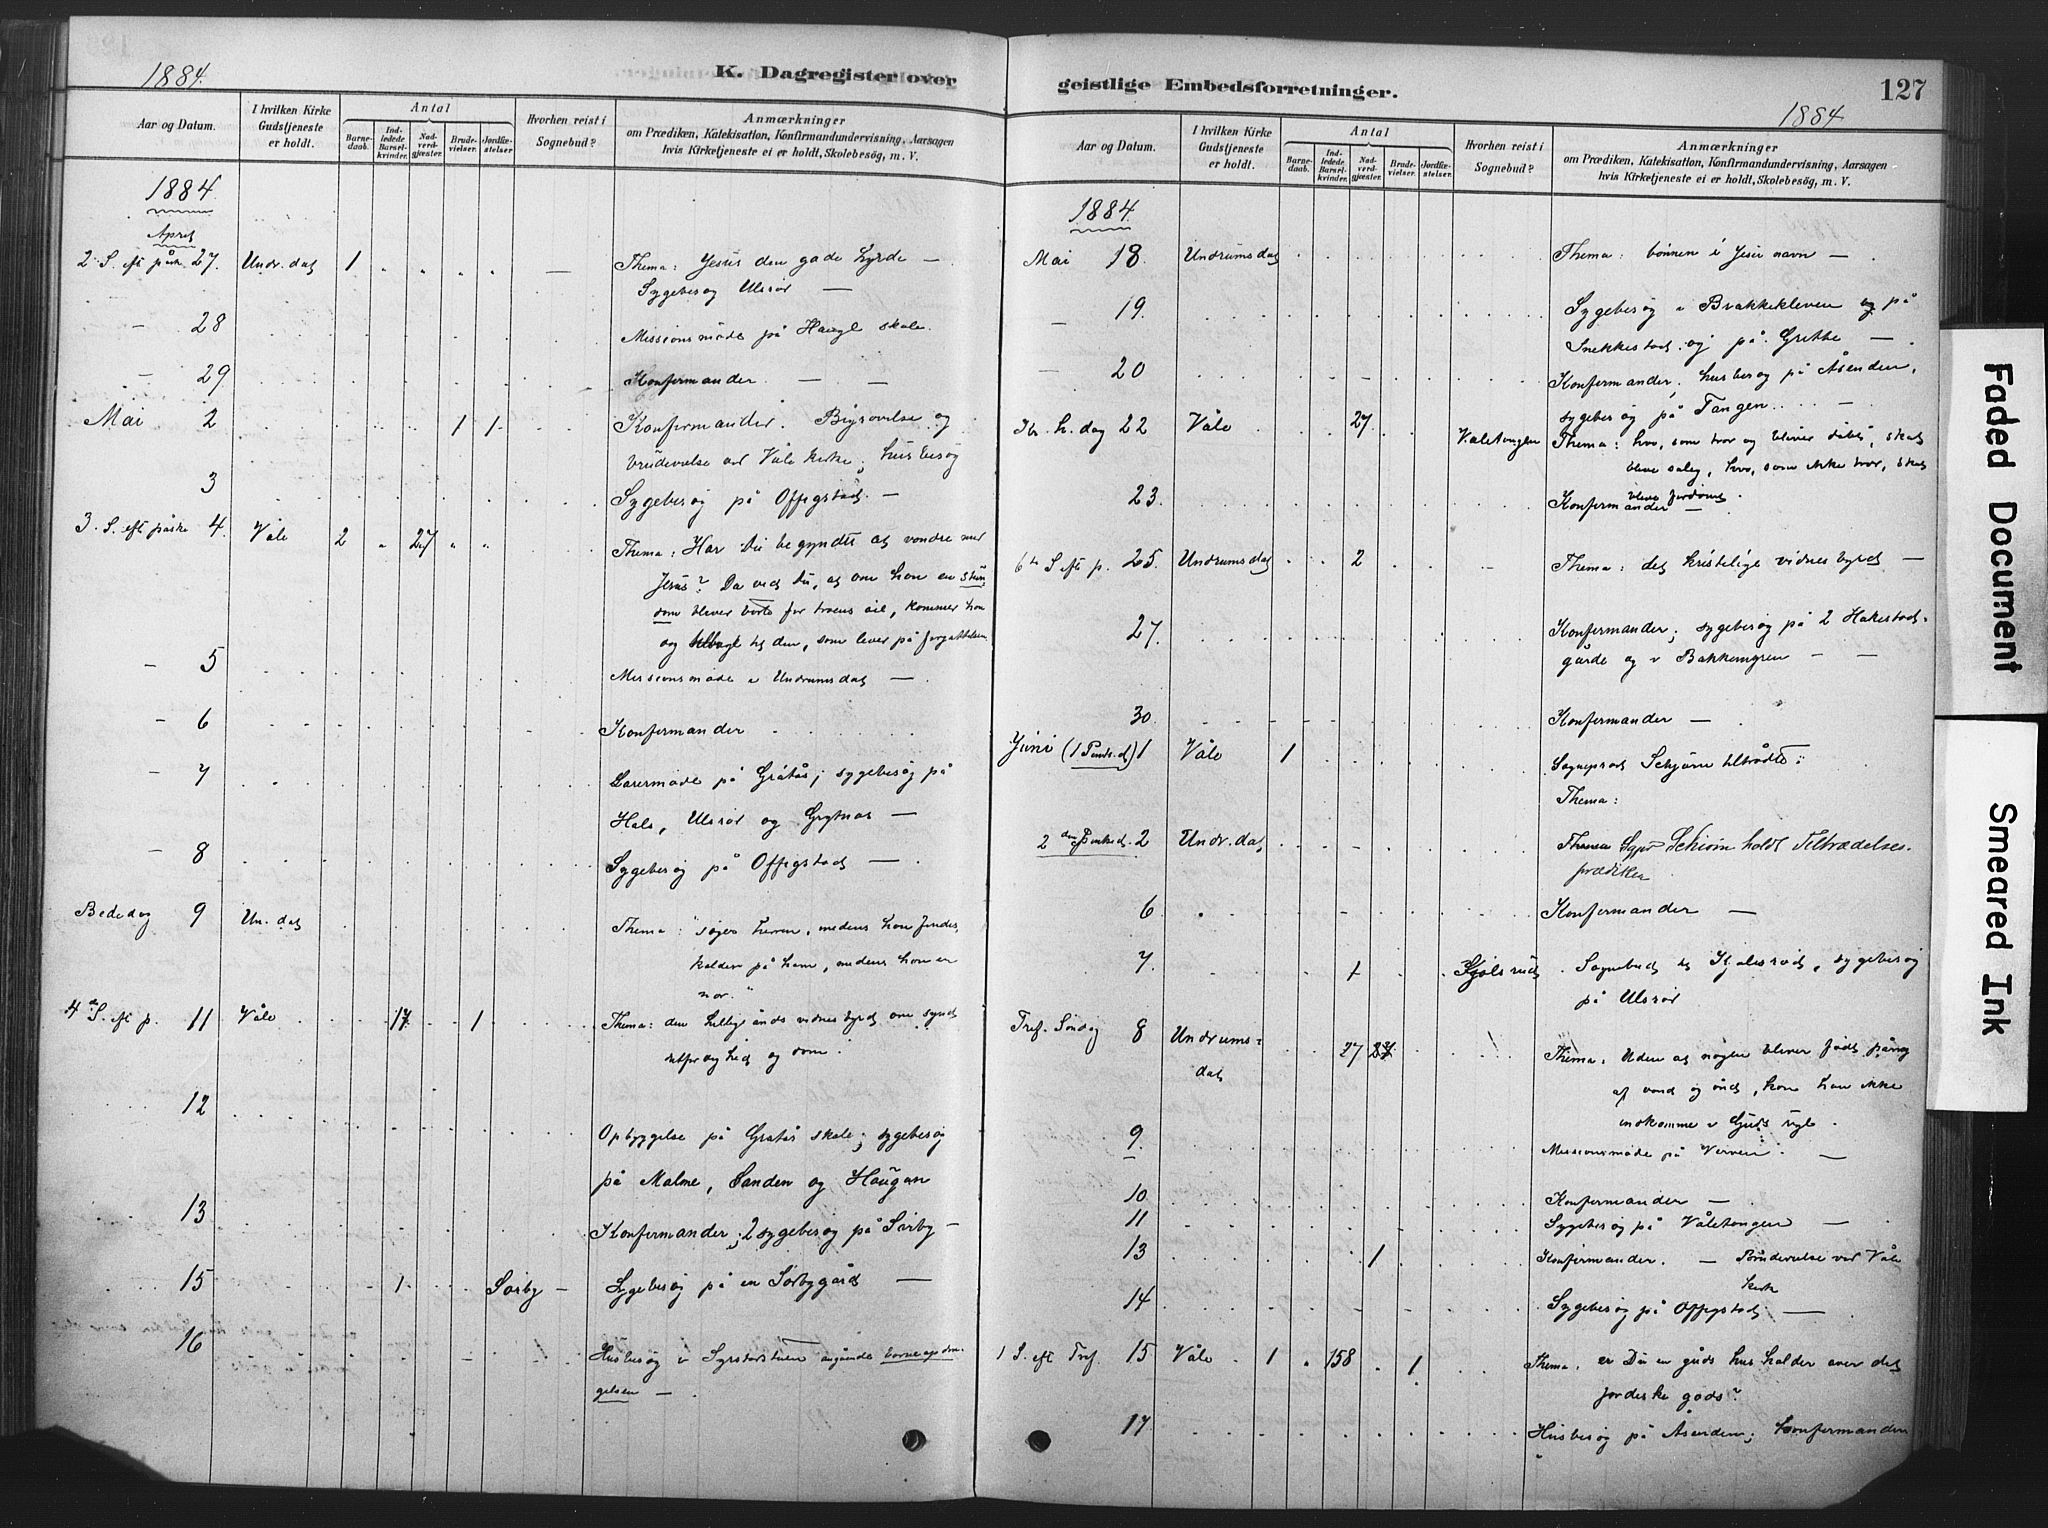 1884.
K. Dagregister over
Aar og Datum.
I hvilken Kirke Gudstjeneste er holdt.
Antal
Barnedaab.
Indledede Barselkvinder.
Nadverdgjæster.
Brudevielser.
Jordfæstelser
Hvorhen reist i Sognebud?
Anmærkninger
om Prædiken, Katekisation, Konfirmandundervisning, Aarsagen
hvis Kirketjeneste ei er holdt, Skolebesög, m. V.
1884.
April
2. S. eft påske 27. Undr. dal 1 Thema: Jesus den gode hyrde —
Sygebesög Ulsrör —
— 28 Missionsmöde på Haugl skole.
— 29 Konfermander. — —
Mai 2 1 1 Konfermander. Begravelse og
brudevielse ved Våle kirke; husbesög
3 Sygebesög på Offigstad. —
3. S. eft påske 4. Våle 2 27 Thema: Har Du begyndt at vandre med
Jesus? Da ved Du, at om han en stun-
dom bliver borte for troens öie, kommer han
og tilbage til den, som lever på forjættelsen
— 5 Missionsmöde i Undrumsdal —
— 6 Konfermander
— 7 Lærermöde på Gråtås; sygebesög på
Hals, Ulsrör og Grytnes —
— 8 Sygebesög på Offigstad —
Bededag 9 Un. dal Thema: "söger herren, medens han findes,
kalder på ham, medens han er
nær."
4de S. eft p. 11 Våle 17 1 Thema: den hellig ånds vidnesbyrd om synd
retfærdighed og dom.
12 Opbyggelse på Gråtås skole; sygebesög
på Malme, Sanden og Haugan
13 Konfermander; 2 sygebesög på Sörby —
15 1 Sörby — Sygebesög på en Sörbygård —
16 Husbesög i angående börneopdra-
gelsen —
geistlige Embedsforretninger.
127
1884
Aar og Datum.
I hvilken Kirke Gudstjeneste er holdt.
Antal
Barnedaab.
Indledede Barselkvinder.
Nadverdgjæster.
Brudevielser.
Jordfæstelser.
Hvorhen reist i Sognebud?
Anmærkninger
om Prædiken, Katekisation, Konfirmandundervisning, Aarsagen
hvis Kirketjeneste ei er holdt, Skolebesög, m. V.
1884.
Mai 18. Undrumsdal Thema: bönnen i Jesu navn —
— 19. Sygebesög i Brækkekleven og på
Snekkestad og på Grette —
— 20 Konfermander, husbesög på Åsenden,
sygebesög på Tangen —
Kr. h. dag 22 Våle 27 Våletangen Thema: hvo, som tror og bliver döbt, skal
blive salig, hvo, som ikke tror, skal
blive fordömt.
23. Konfermander —
6te S eft p. 25. Undrumsdal 2 Thema: det kristelige vidnesbyrd —
27. Konfermander; sygebesög på 2 Hakestad-
gårde og i Bakkemyren — —
30. Konfermander —
Juni (1 Pintsed.) 1 Våle 1 Sognepræst Schjörn tiltrådte:
Thema:
2den Pinsed. 2 Undr. dal, Thema Sgpr Schiörn holdt Tiltrædelses-
prædiken
6 Konfermander —
7. 1 Kjølsrud Sognebud til Kjølsrød, sygebesög
på Ulsrör
Tref. Söndag 8 Undrums-
dal 27 Thema: Uden at nogen bliver född påny
af vand og ånd, kan han ikke
indkomme i Guds rige.
9. Missionsmöde på Verven. —
10 Konfermander —
11 Sygebesög på Våletangen —
13 1 Konfermander. — Brudevielse ved Våle
kirke
14 Sygebesög på Offigstad —
1 S. eft Tref. 15 Våle 1 158 1 Thema. er Du en guds husholder over det
jordiske gods?
17 Husbesög på Åsenden; konfermander
Faded Document
Smeared Ink